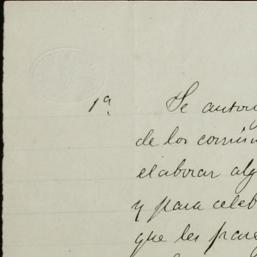 1ª Se autori
de los comisi
elaborar alg
y para celeb
que les pare